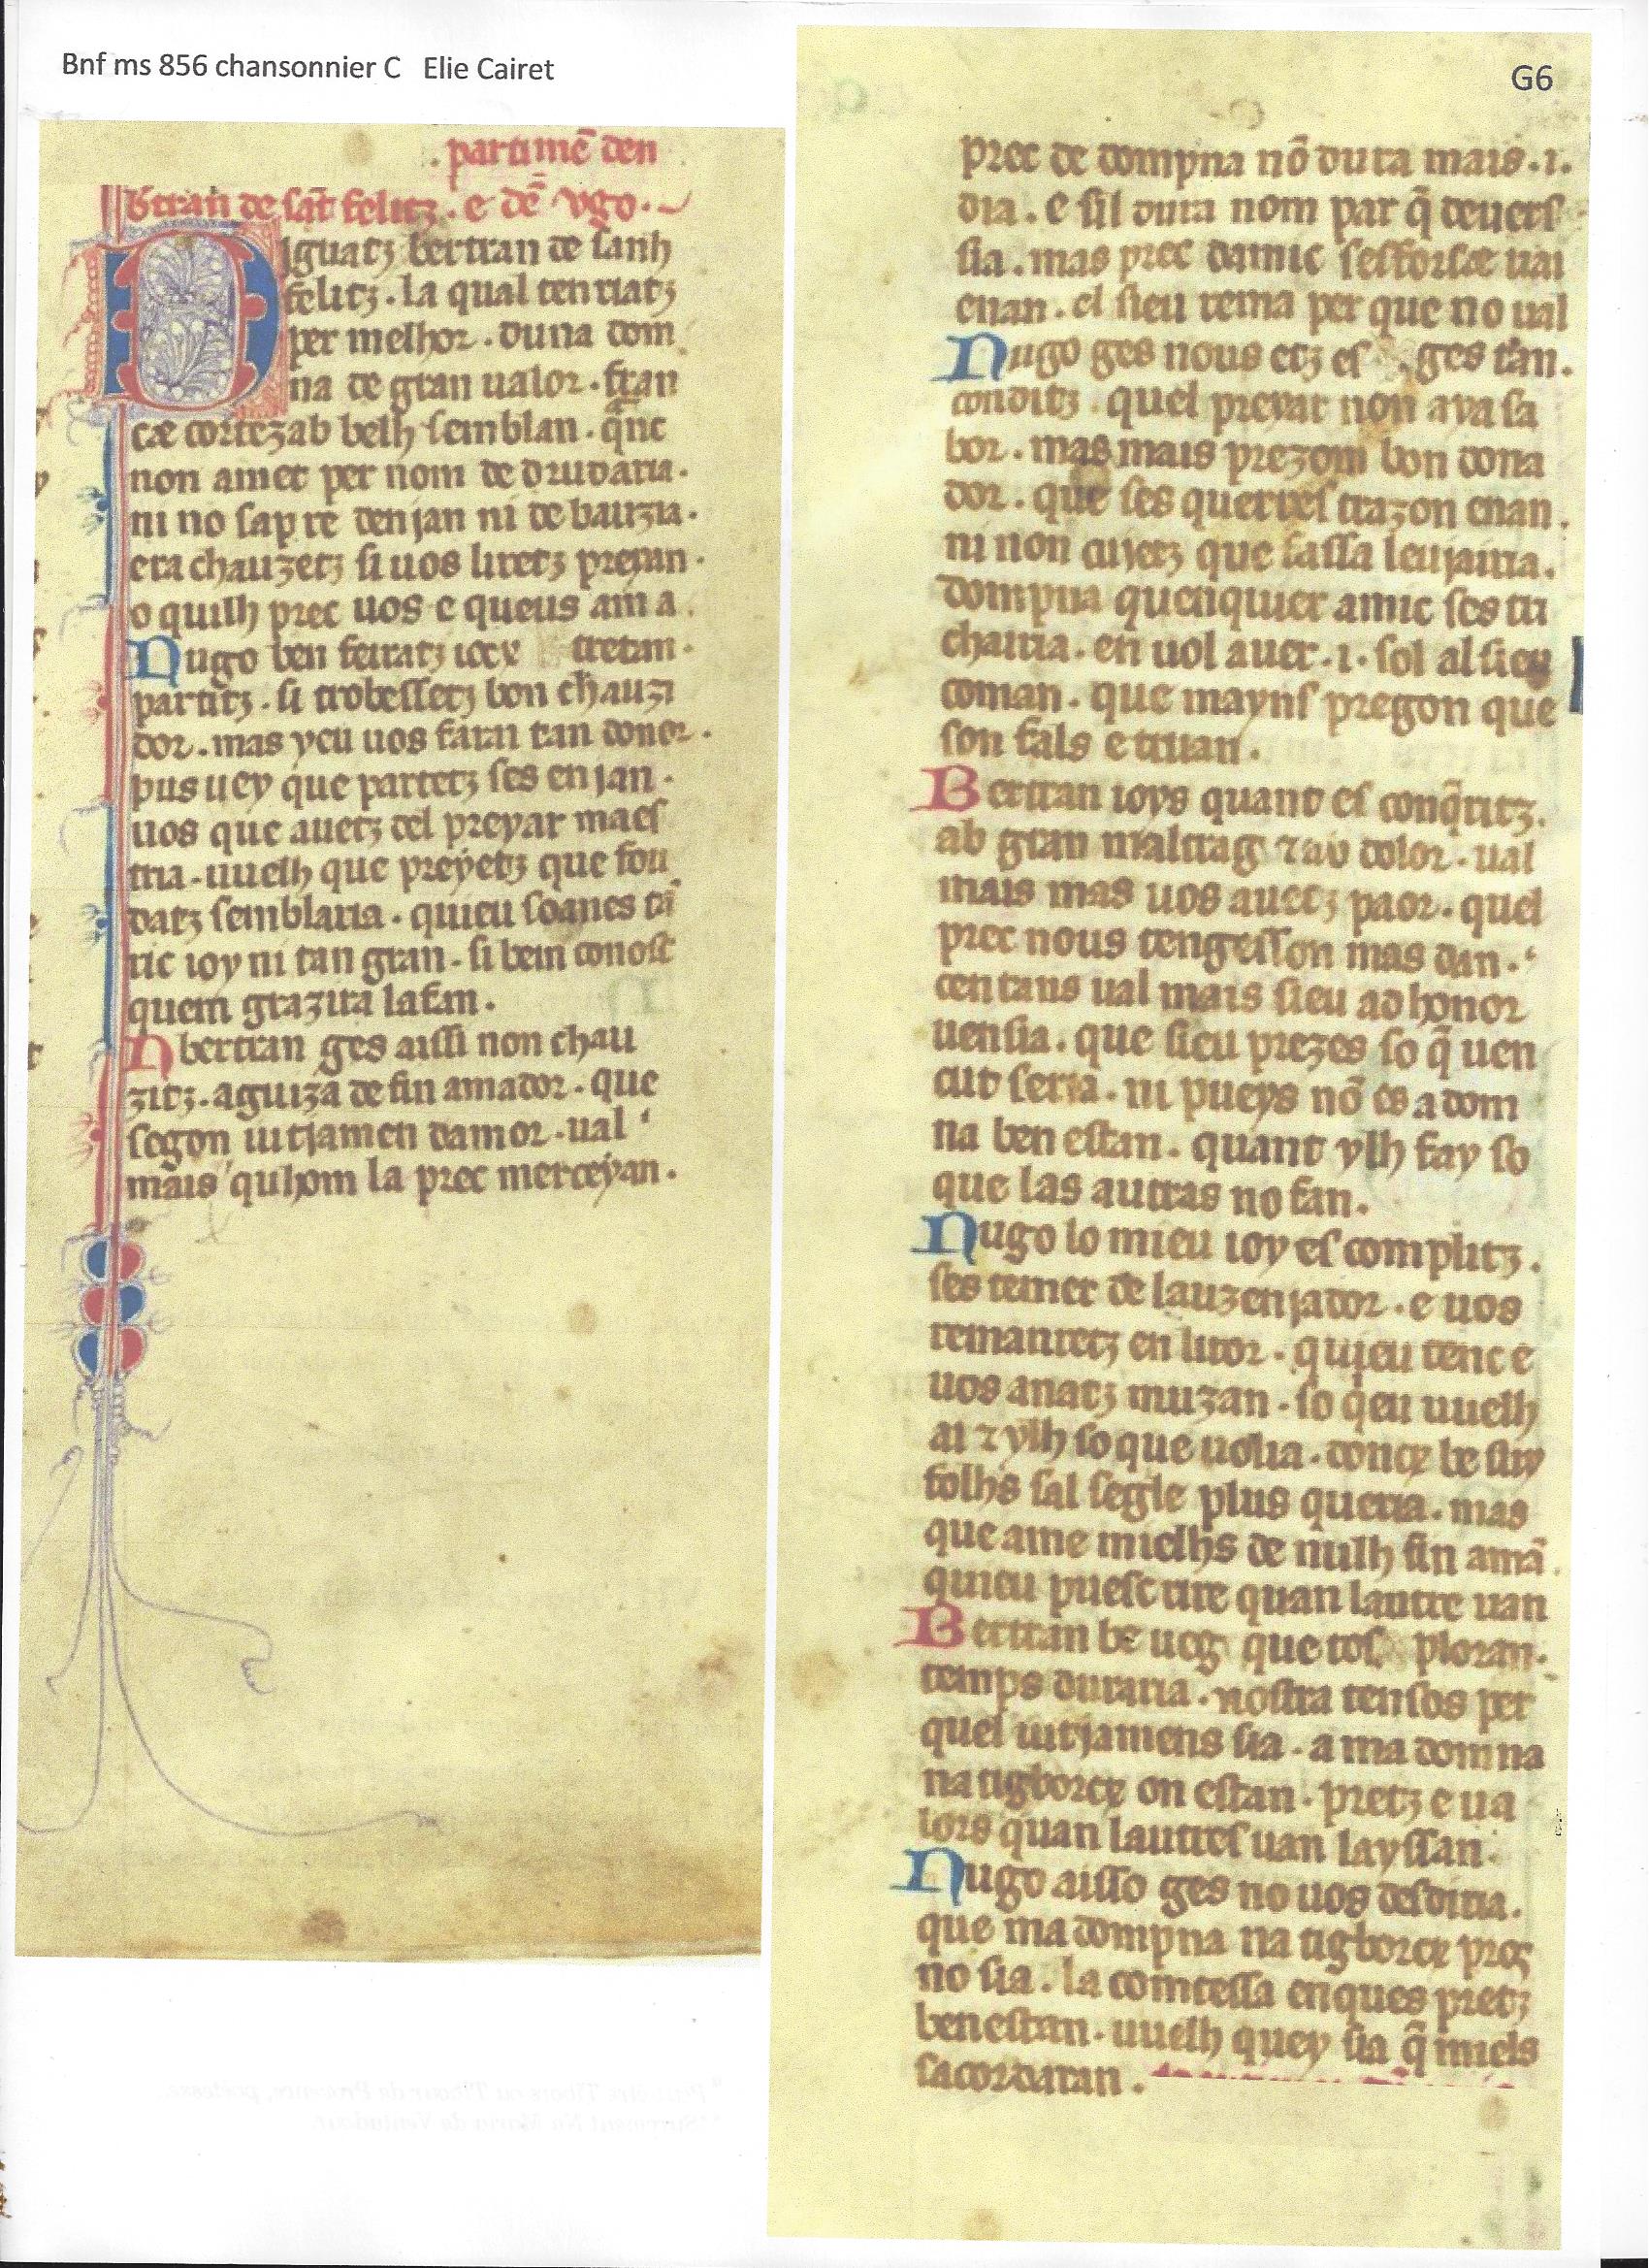 Bnf ms 856 chansonnier C Elie Cairet
G6
. partimē den
b̄tran de sāt felitz . e dē ugo .
Diguatz bertran de sanh
felitz . la qual tenriatz
per melhor . duna dom
na de gran ualor . fran
cæ cortezab belh semblan . q̄nc
non amet per nom de drudaria .
ni no sap re denjan ni de bauzia .
era chauzetz si uos liretz preyan .
o quilh prec uos e queus am a .
Nugo ben feiratz tretan .
partitz . si trobessetz bon chauzi
dor . mas yeu uos farai tan donor .
pus uey que partetz ses enjan .
uos que auetz del preyar maes
tria . uuelh que preyetz que fou
datz semblaria . quieu soanes tā
ric ioy ni tan gran . si bem conosc
quem grazira lafan .
Nbertran ges aissi non chau
zitz . aguiza de fin amador . que
segon iutjamen damor . ual
mais quhom la prec merceyan .
prec de dompna nō dura mais . i .
dia . e sil dura nom par q̄ deuers
sia . mas prec damic sesforsæ uai
enan . el sieu rema per que no ual
Nugo ges nous etz es ges tan .
conditz . quel preyar non aya sa
bor . mas mais prezom bon dona
dor . que ses querres trazon enan .
ni non cujetz que fassa leujairia .
dompna quenquier amic ses tri
chairia . en uol auer . i . sol al sieu
coman . que mayns pregon que
son fals e truan .
Bertran ioys quant es conq̄ritz .
ab gran maltrag ⁊ ab dolor . ual
mais mas uos auetz paor . quel
prec nous tengesson mas dan .
cen tans ual mais sieu ad honor
uensia . que sieu prezes so q̄ uen
cut seria . ni pueys nō es a dom
na ben estan . quant ylh fay so
que las autras no fan .
Nugo lo mieu ioy es complitz .
ses temer de lauzenjador . e uos
remanretz en liror . quieu tenc e
uos anatz muzan . so q̄eu uuelh
ai ⁊ ylh so que uolia . doncx be suy
folhs sal segle plus queria . mas
que ame mielhs de nulh fin amā .
quieu puesc rire quan lautre uan
Bertran be ueg que tos ploran .
temps duraria . nostra tensos per
quel iutjamens sia . a ma domna
na tigborcx on estan . pretz e ua
lors quan lautres uan layssan .
Nugo aisso ges no uos desdiria .
que ma dompna na tigborcx pros
no sia . la comtessa enques pretz
benestan . uuelh quey sia q̄ miels
sacordaran .